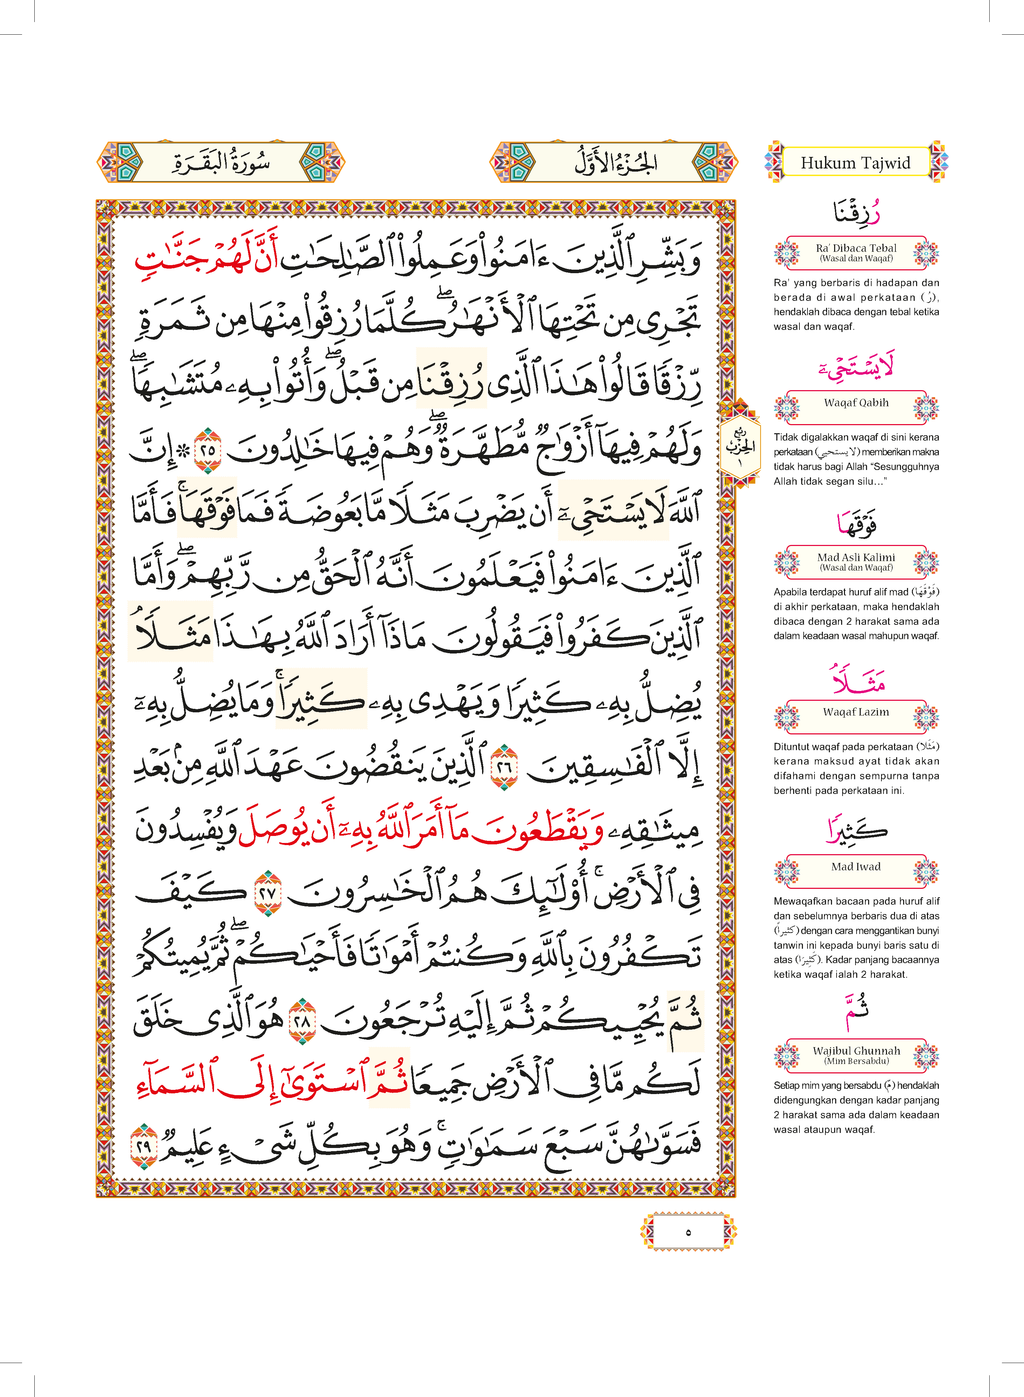 سُورَةُ البَقَرَةِ
الجُزْءُ الأَوَّلُ
وَبَشِّرِ ٱلَّذِينَ ءَامَنُوا۟ وَعَمِلُوا۟ ٱلصَّـٰلِحَـٰتِ أَنَّ لَهُمْ جَنَّـٰتٍ
تَجْرِى مِن تَحْتِهَا ٱلْأَنْهَـٰرُ ۖ كُلَّمَا رُزِقُوا۟ مِنْهَا مِن ثَمَرَةٍ
رِّزْقًا قَالُوا۟ هَـٰذَا ٱلَّذِى رُزِقْنَا مِن قَبْلُ ۖ وَأُتُوا۟ بِهِۦ مُتَشَـٰبِهًا ۖ
وَلَهُمْ فِيهَآ أَزْوَٰجٌ مُّطَهَّرَةٌ ۖ وَهُمْ فِيهَا خَـٰلِدُونَ ٢٥ * إِنَّ
ٱللَّهَ لَا يَسْتَحْىِۦٓ أَن يَضْرِبَ مَثَلًا مَّا بَعُوضَةً فَمَا فَوْقَهَا ۚ فَأَمَّا
ٱلَّذِينَ ءَامَنُوا۟ فَيَعْلَمُونَ أَنَّهُ ٱلْحَقُّ مِن رَّبِّهِمْ ۖ وَأَمَّا
ٱلَّذِينَ كَفَرُوا۟ فَيَقُولُونَ مَاذَآ أَرَادَ ٱللَّهُ بِهَـٰذَا مَثَلًا ۘ
يُضِلُّ بِهِۦ كَثِيرًا وَيَهْدِى بِهِۦ كَثِيرًا ۚ وَمَا يُضِلُّ بِهِۦٓ
إِلَّا ٱلْفَـٰسِقِينَ ٢٦ ٱلَّذِينَ يَنقُضُونَ عَهْدَ ٱللَّهِ مِنۢ بَعْدِ
مِيثَـٰقِهِۦ وَيَقْطَعُونَ مَآ أَمَرَ ٱللَّهُ بِهِۦٓ أَن يُوصَلَ وَيُفْسِدُونَ
فِى ٱلْأَرْضِ ۚ أُو۟لَـٰٓئِكَ هُمُ ٱلْخَـٰسِرُونَ ٢٧ كَيْفَ
تَكْفُرُونَ بِٱللَّهِ وَكُنتُمْ أَمْوَٰتًا فَأَحْيَـٰكُمْ ۖ ثُمَّ يُمِيتُكُمْ
ثُمَّ يُحْيِيكُمْ ثُمَّ إِلَيْهِ تُرْجَعُونَ ٢٨ هُوَ ٱلَّذِى خَلَقَ
لَكُم مَّا فِى ٱلْأَرْضِ جَمِيعًا ثُمَّ ٱسْتَوَىٰٓ إِلَى ٱلسَّمَآءِ
فَسَوَّىٰهُنَّ سَبْعَ سَمَـٰوَٰتٍ ۚ وَهُوَ بِكُلِّ شَىْءٍ عَلِيمٌ ٢٩
٥
رُبْع
الحِزْب
١
Hukum Tajwid
رُزِقْنَا
Ra' Dibaca Tebal
(Wasal dan Waqaf)
Ra' yang berbaris di hadapan dan
berada di awal perkataan (رُ),
hendaklah dibaca dengan tebal ketika
wasal dan waqaf.
لَا يَسْتَحْىِۦٓ
Waqaf Qabih
Tidak digalakkan waqaf di sini kerana
perkataan (لا يستحيي) memberikan makna
tidak harus bagi Allah “Sesungguhnya
Allah tidak segan silu...”
فَوْقَهَا
Mad Asli Kalimi
(Wasal dan Waqaf)
Apabila terdapat huruf alif mad (فَوْقَهَا)
di akhir perkataan, maka hendaklah
dibaca dengan 2 harakat sama ada
dalam keadaan wasal mahupun waqaf.
مَثَلًا ۘ
Waqaf Lazim
Dituntut waqaf pada perkataan (مَثَلًا)
kerana maksud ayat tidak akan
difahami dengan sempurna tanpa
berhenti pada perkataan ini.
كَثِيرًا
Mad Iwad
Mewaqafkan bacaan pada huruf alif
dan sebelumnya berbaris dua di atas
(كَثِيرًا) dengan cara menggantikan bunyi
tanwin ini kepada bunyi baris satu di
atas (كَثِيرَا). Kadar panjang bacaannya
ketika waqaf ialah 2 harakat.
ثُمَّ
Wajibul Ghunnah
(Mim Bersabdu)
Setiap mim yang bersabdu (مّ) hendaklah
didengungkan dengan kadar panjang
2 harakat sama ada dalam keadaan
wasal ataupun waqaf.